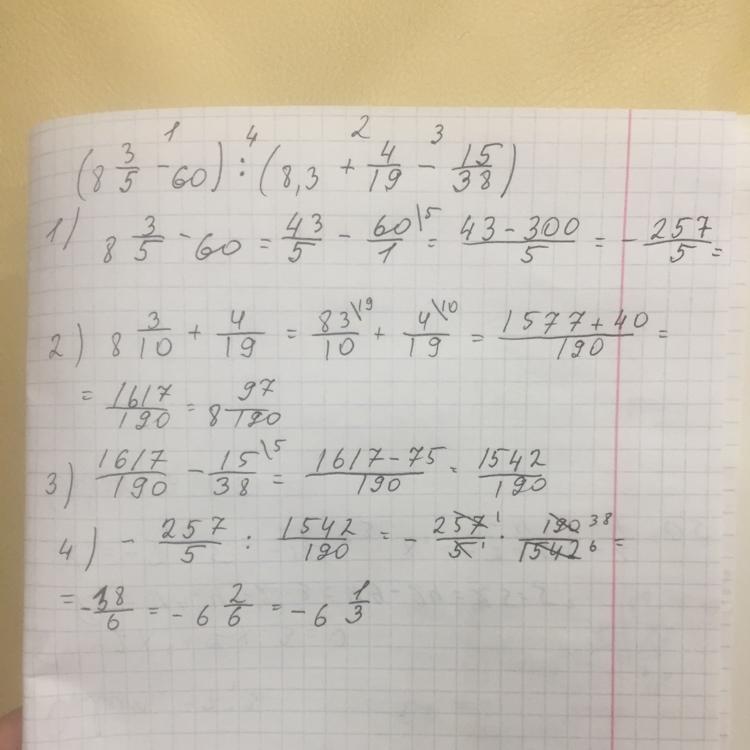 1 4 2 3
(8 3/5 - 60) : (8,3 + 4/19 - 15/38)
1) 8 3/5 - 60 = 43/5 - 60/1 \5 = 43-300/5 = - 257/5 =
2) 8 3/10 + 4/19 = 83/10 \19 + 4/19 \10 = 1577+40/190 =
= 1617/190 = 8 97/190
3) 1617/190 - 15/38 \5 = 1617-75/190 = 1542/190
4) - 257/5 : 1542/190 = - 257 1/5 1 · 190 38/1542 6 =
= - 38/6 = - 6 2/6 = - 6 1/3